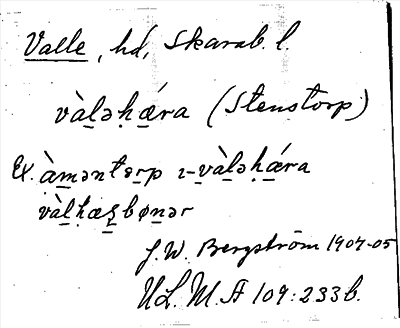 Valle, hd, Skarab. l.
vàləhǽra (Stenstorp)
Ex. àməntərp ı-vàləhǽra
vàlhæʂbønər
J. W. Bergström 1904-05
ULMA 109:233 b.